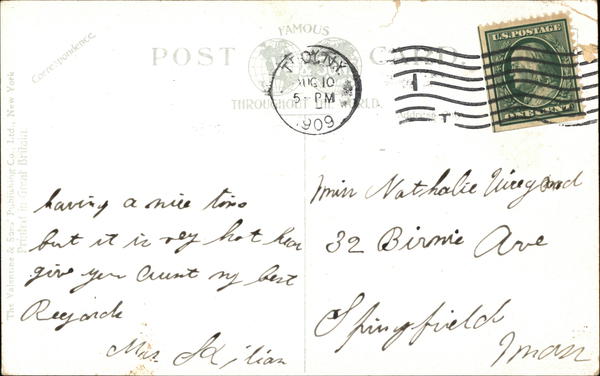 Correspondence.
FAMOUS
POST CARD
THROUGHOUT THE WORLD.
TROY, N.Y.
AUG 10
5 - PM
1909
U.S. POSTAGE
ONE CENT
The Valentine & Sons Publishing Co. Ltd., New York
Printed in Great Britain.
having a nice time
but it is vey hot hear
give you Aunt my best
Regards
Mrs. Kilian
Miss Nathalie
32 Birnie Ave
Springfield
Mass